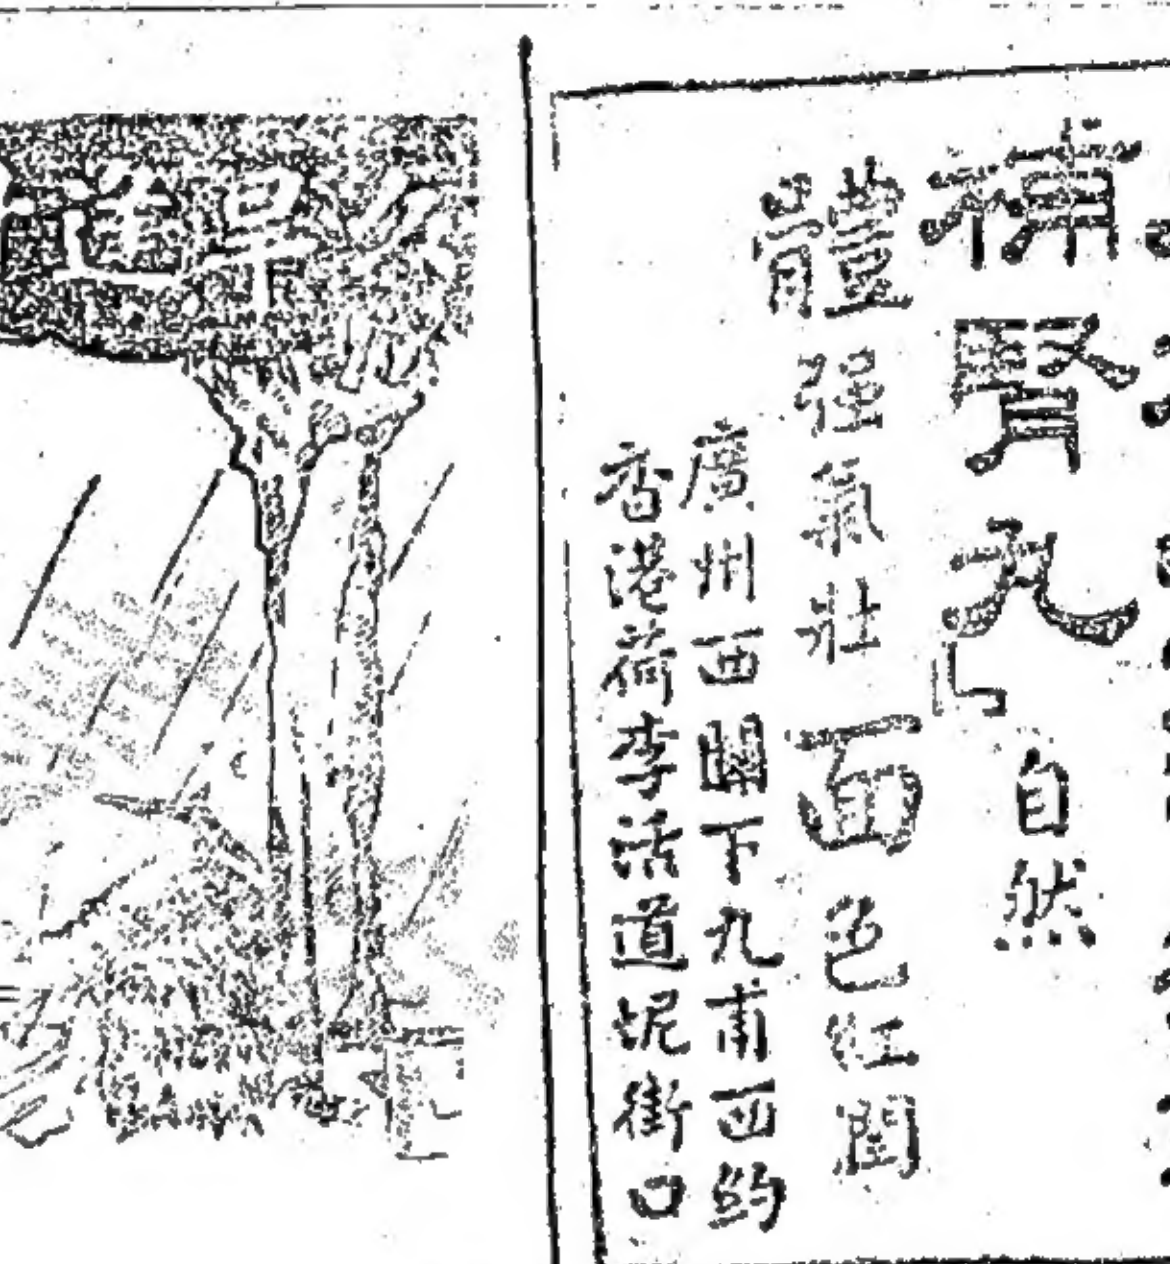 補腎丸
自然
體强氣壯
面色红閏
廣州西關下九甫西約
香港荷李活道坭街口